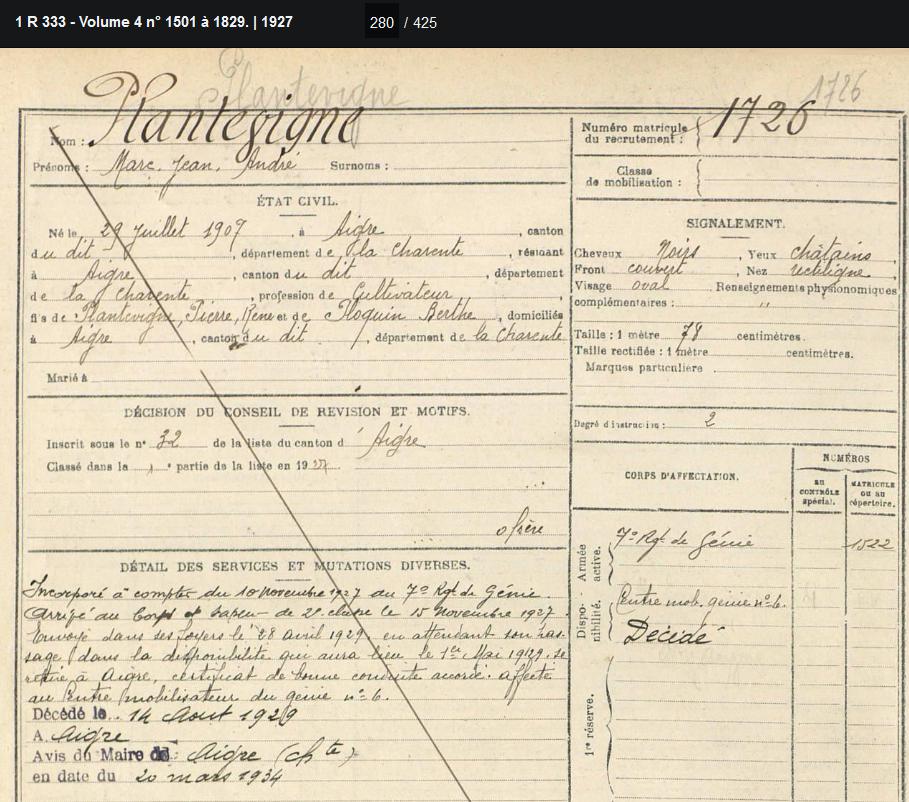 1 R 333 - Volume 4 n° 1501 à 1829. | 1927
280 / 425
Plantevigne
1726
Nom : Plantevigne
Prénoms : Marc, Jean, André Surnoms :
ÉTAT CIVIL.
Né le 29 Juillet 1907, à Aigre, canton
du dit, département de la Charente, résidant
à Aigre, canton du dit, département
de la Charente, profession de Cultivateur
fils de Plantevigne, Pierre, René et de Ploquin Berthe, domiciliés
à Aigre, canton du dit, département de la Charente
Marié à
DÉCISION DU CONSEIL DE REVISION ET MOTIFS.
Inscrit sous le n° 32 de la liste du canton d'Aigre
Classé dans la 1e partie de la liste en 1927
frère
DÉTAIL DES SERVICES ET MUTATIONS DIVERSES.
Incorporé à compter du 10 novembre 1927 au 7e Rgt de Génie.
Arrivé au Corps et sapeur de 2e classe le 15 Novembre 1927.
Envoyé dans ses foyers le 28 avril 1929, en attendant son pas-
sage dans la disponibilité qui aura lieu le 1er Mai 1929. se
retire à Aigre, certificat de bonne conduite accordé. affecté
au Centre mobilisateur du génie n° 6.
Décédé le 14 Aout 1929
A Aigre
Avis du Maire de Aigre (Chte)
en date du 20 mars 1934
Numéro matricule du recrutement : 1726
Classe de mobilisation :
SIGNALEMENT.
Cheveux Noirs, Yeux châtains
Front couvert, Nez rectiligne
Visage oval Renseignements physionomiques
complémentaires : "
Taille : 1 mètre 78 centimètres.
Taille rectifiée : 1 mètre centimètres.
Marques particulière
Degré d'instruction : 2
CORPS D'AFFECTATION.
NUMÉROS
AU CONTRÔLE spécial.
MATRICULE OU AU répertoire.
Armée active.
7e Rgt de Génie
1522
Disponibilité.
Centre mob. génie n° 6.
Décédé
1re réserve.